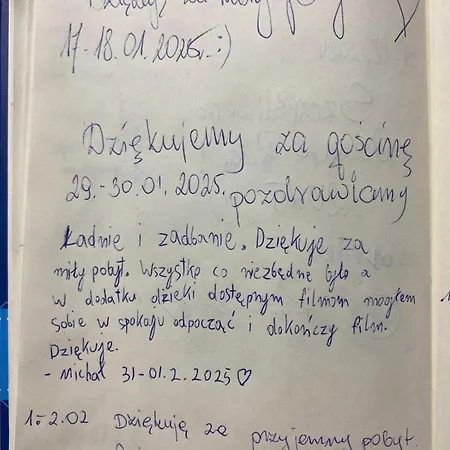 Dziękuję za miły
17-18.01.2025r. :)
Dziękujemy za gościnę
29.-30.01.2025.
pozdrawiamy
Ładnie i zadbanie. Dziękuje za
miły pobyt. Wszystko co niezbędne było a
w dodatku dzięki dostępnym filmom mogłem
sobie w spokoju odpocząć i dokończy film.
Dziękuje.
- Michał 31-01.2.2025♡
1÷2.02 Dziękuję za przyjemny pobyt.